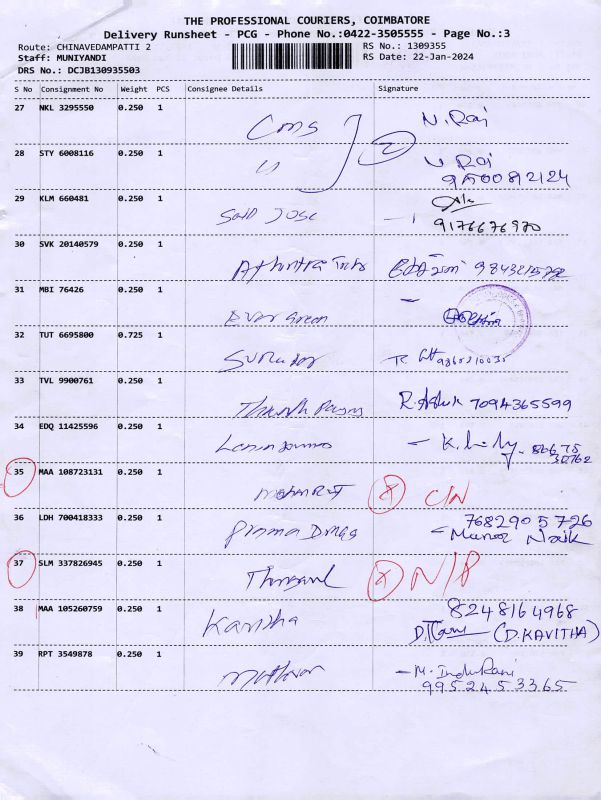 THE PROFESSIONAL COURIERS, COIMBATORE
Delivery Runsheet - PCG - Phone No.:0422-3505555 - Page No.:3
Route: CHINAVEDAMPATTI 2 RS No.: 1309355
Staff: MUNIYANDI RS Date: 22-Jan-2024
DRS No.: DCJB130935503
S No Consignment No Weight PCS Consignee Details Signature
27 NKL 3295550 0.250 1 Cons N. Raj
28 STY 6008116 0.250 1 2
29 KLM 660481 0.250 1 Said Jose
9176676970
30 SVK 20140579 0.250 1
31 MBI 76426 0.250 1 Ever Green
32 TUT 6695800 0.725 1
33 TVL 9900761 0.250 1 R. Ashok 7094365599
34 EDQ 11425596 0.250 1
35 MAA 108723131 0.250 1 C/N
36 LDH 700418333 0.250 1 7682905726
Manoj Naik
37 SLM 337826945 0.250 1 N/P
38 MAA 105260759 0.250 1 Kavitha 8248164968
(D.KAVITHA)
39 RPT 3549878 0.250 1 - M. InduRani
9952453365